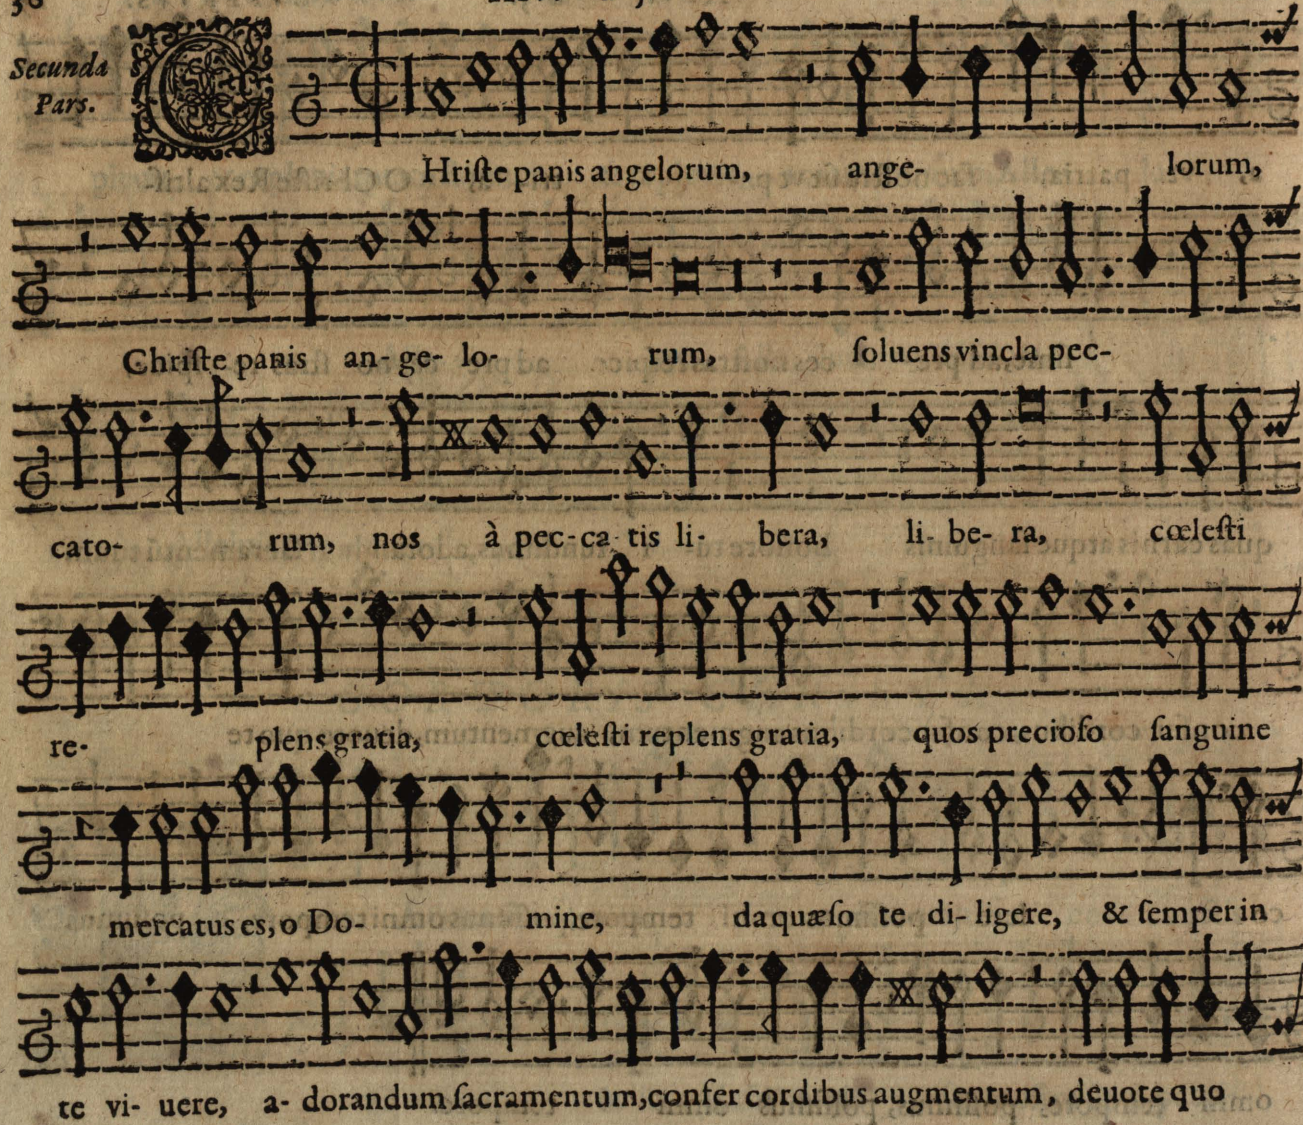 Secunda
Pars.
CHriſte panis angelorum, ange- lorum,
Chriſte panis an- ge- lo- rum, ſoluens vincla pec-
cato- rum, nos à pec-ca tis li- bera, li- be- ra, cœleſti
re- plens gratia, cœleſti replens gratia, quos precioſo ſanguine
mercatus es, o Do- mine, da quæſo te di- ligere, & ſemper in
te vi- uere, a- dorandum ſacramentum, confer cordibus augmentum, deuote quo